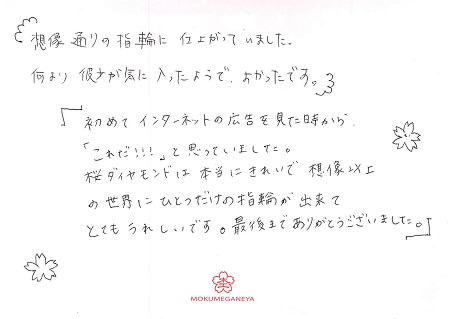 想像通りの指輪に仕上がっていました。
何より彼女が気に入ったようで、よかったです。
「初めてインターネットの広告を見た時から、
「これだ!!!」と思っていました。
桜ダイヤモンドは本当にきれいで想像以上
の世界にひとつだけの指輪が出来て
とてもうれしいです。最後までありがとうございました。」
MOKUMEGANEYA